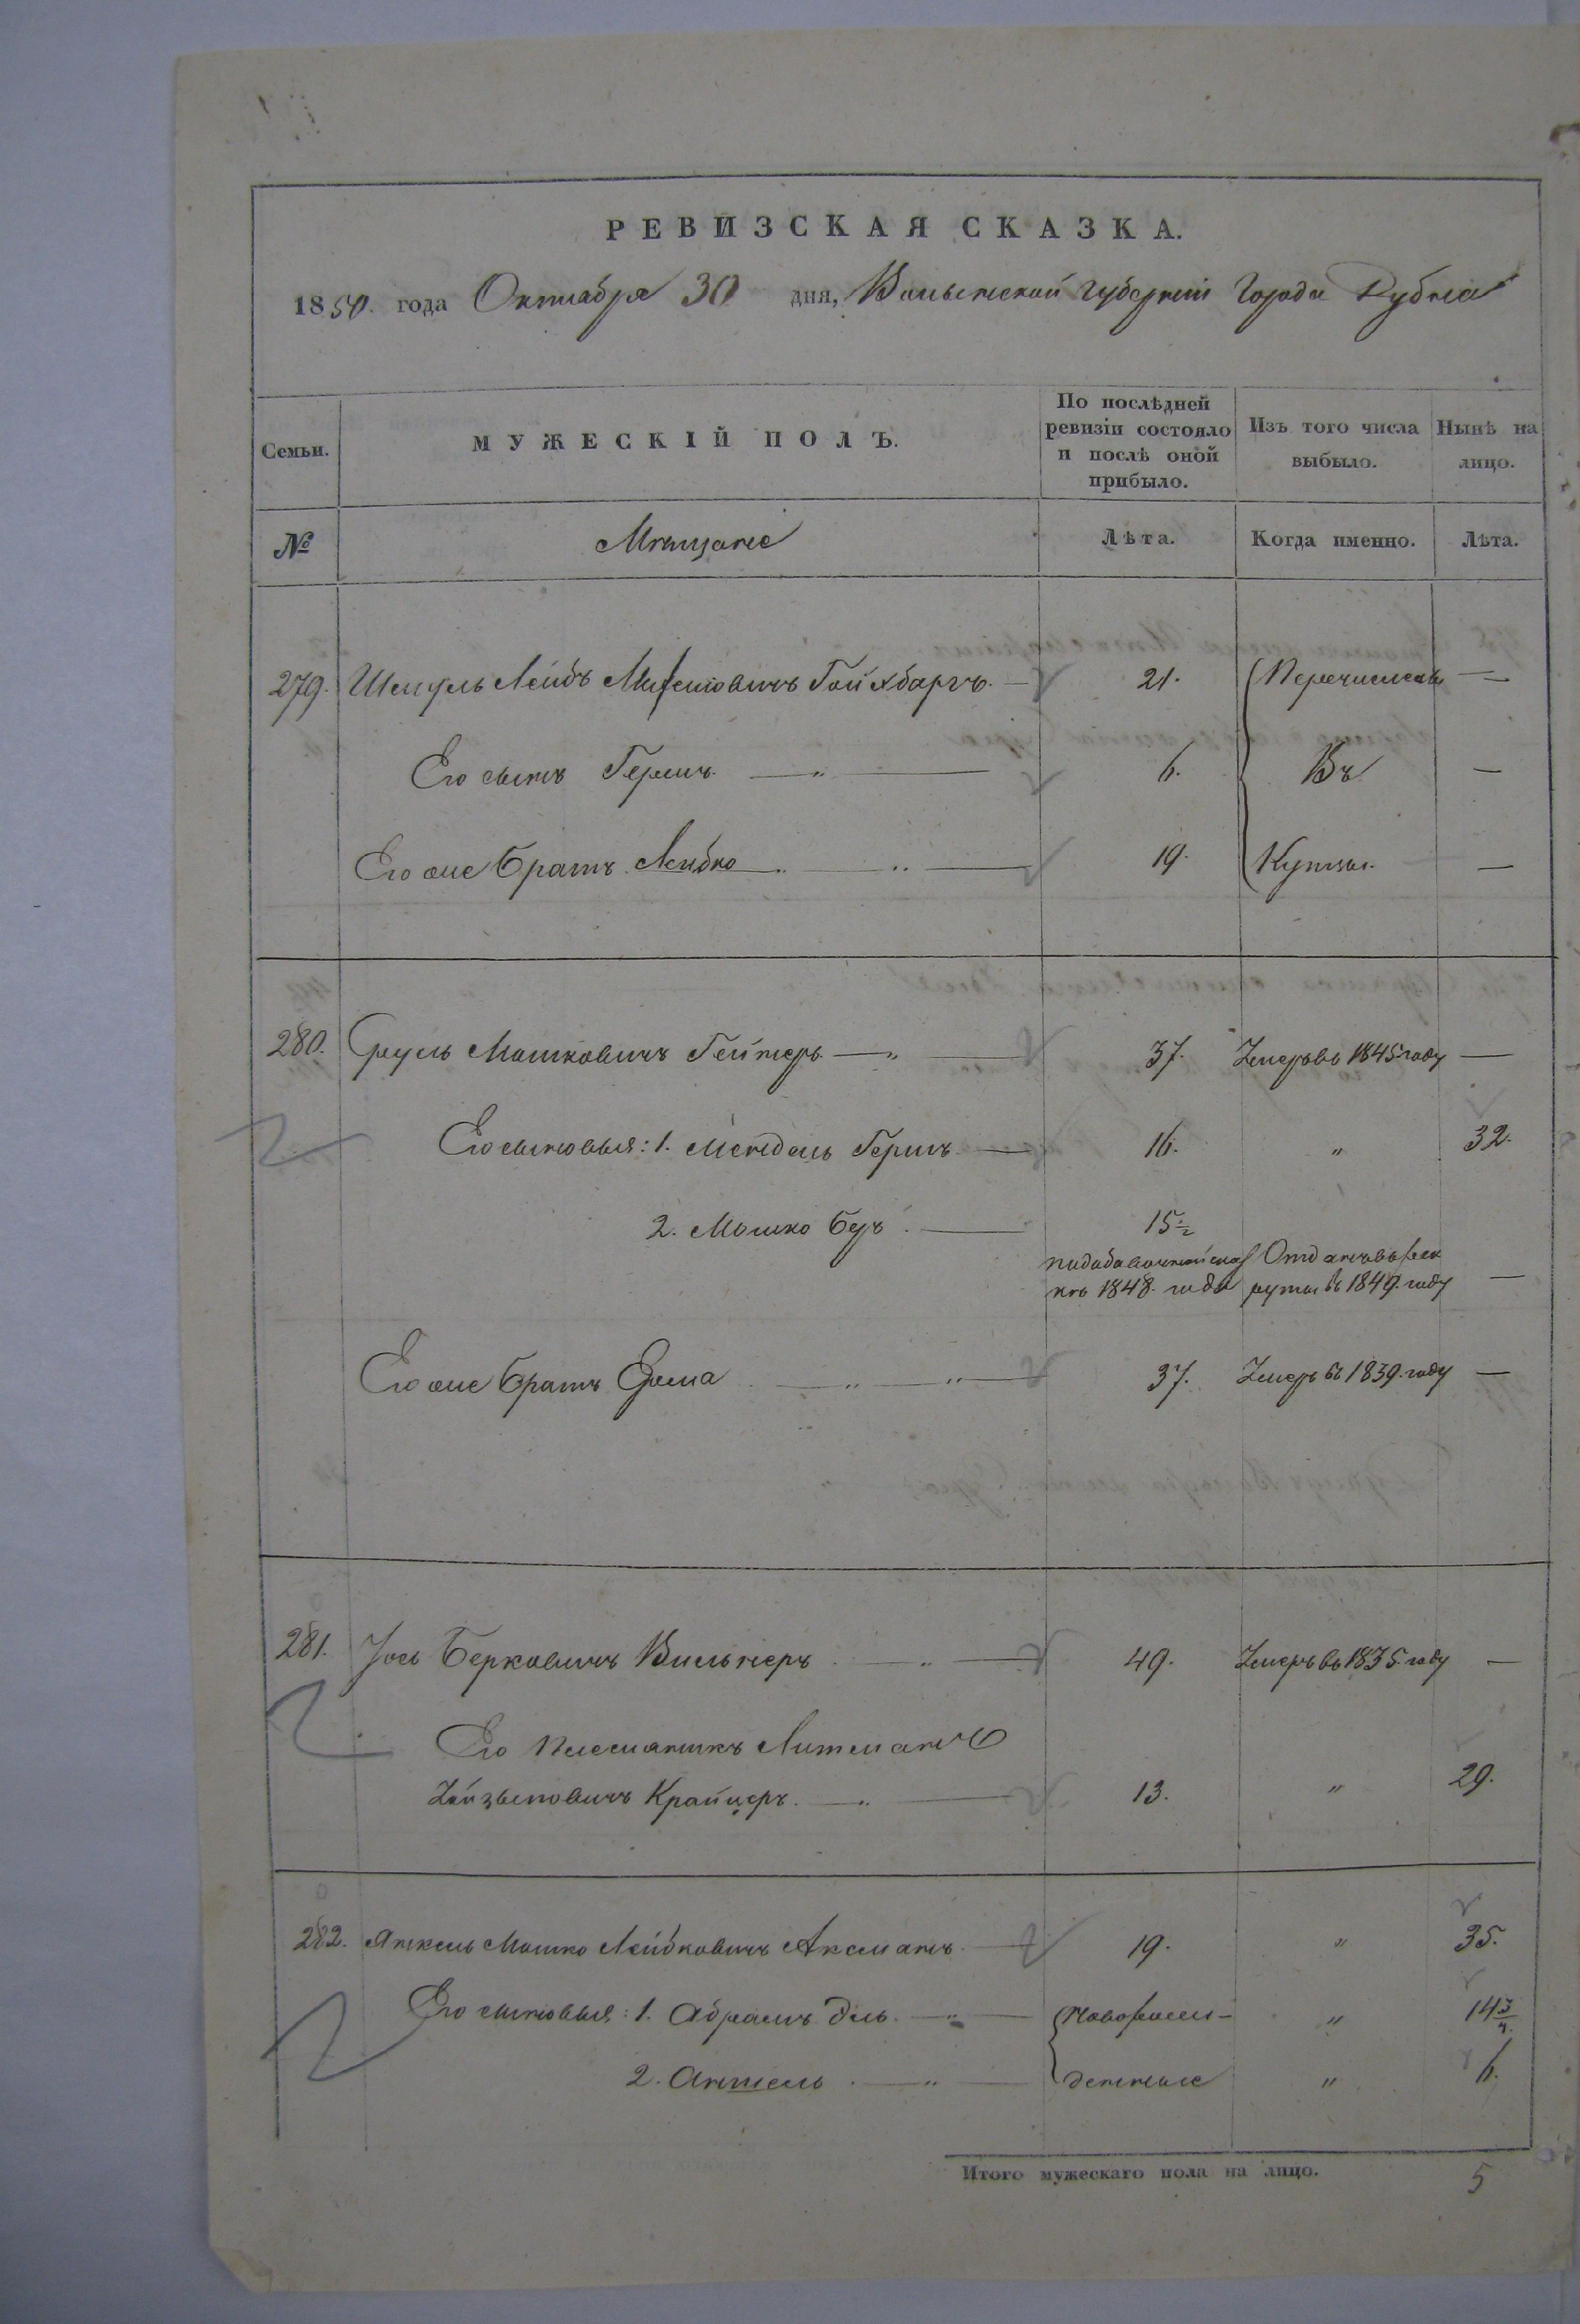 РЕВИЗСКАЯ СКАЗКА.
1850. года Октября 30 дня, Волынской губерніи Города Дубна
Семьи. МУЖЕСКІЙ ПОЛЪ. По послѣдней ревизіи состояло и послѣ оной прибыло. Изъ того числа выбыло. Нынѣ на лицо.
№ Мѣщане Лѣта. Когда именно. Лѣта.
279. Шмуль Лейбъ Гойхбаргъ. — 21. Перечисленъ —
Его сынъ Гершъ. — „ — 6. Въ —
Его же братъ Лейбко — „ — 19. Купцы. —
280. Сруль Мошковичъ Гейнеръ — „ — 37. Умеръ въ 1845 году —
Его сыновья: 1. Мендель Гершъ — 16. „ 32.
2. Мошко Беръ. — 15 1/2
по добавочной сказ Отданъ въ рек
кѣ 1848. года руты въ 1849. году —
Его же братъ Ерма — „ — „ — 37. Умеръ въ 1839. году —
281. Іось Берковичъ Вильнеръ — „ — 49. Умеръ въ 1835 году —
Его племянникъ Литманъ
Крайцеръ. — „ — 13. „ 29.
282. Янкель Мошко Лейбковичъ Аксманъ — 19. „ 35.
Его сыновья: 1. Абрамъ Эль. — „ — новорож- „ 14 3/4.
2. Аншель — „ — денные „ 6.
Итого мужескаго пола на лицо. 5